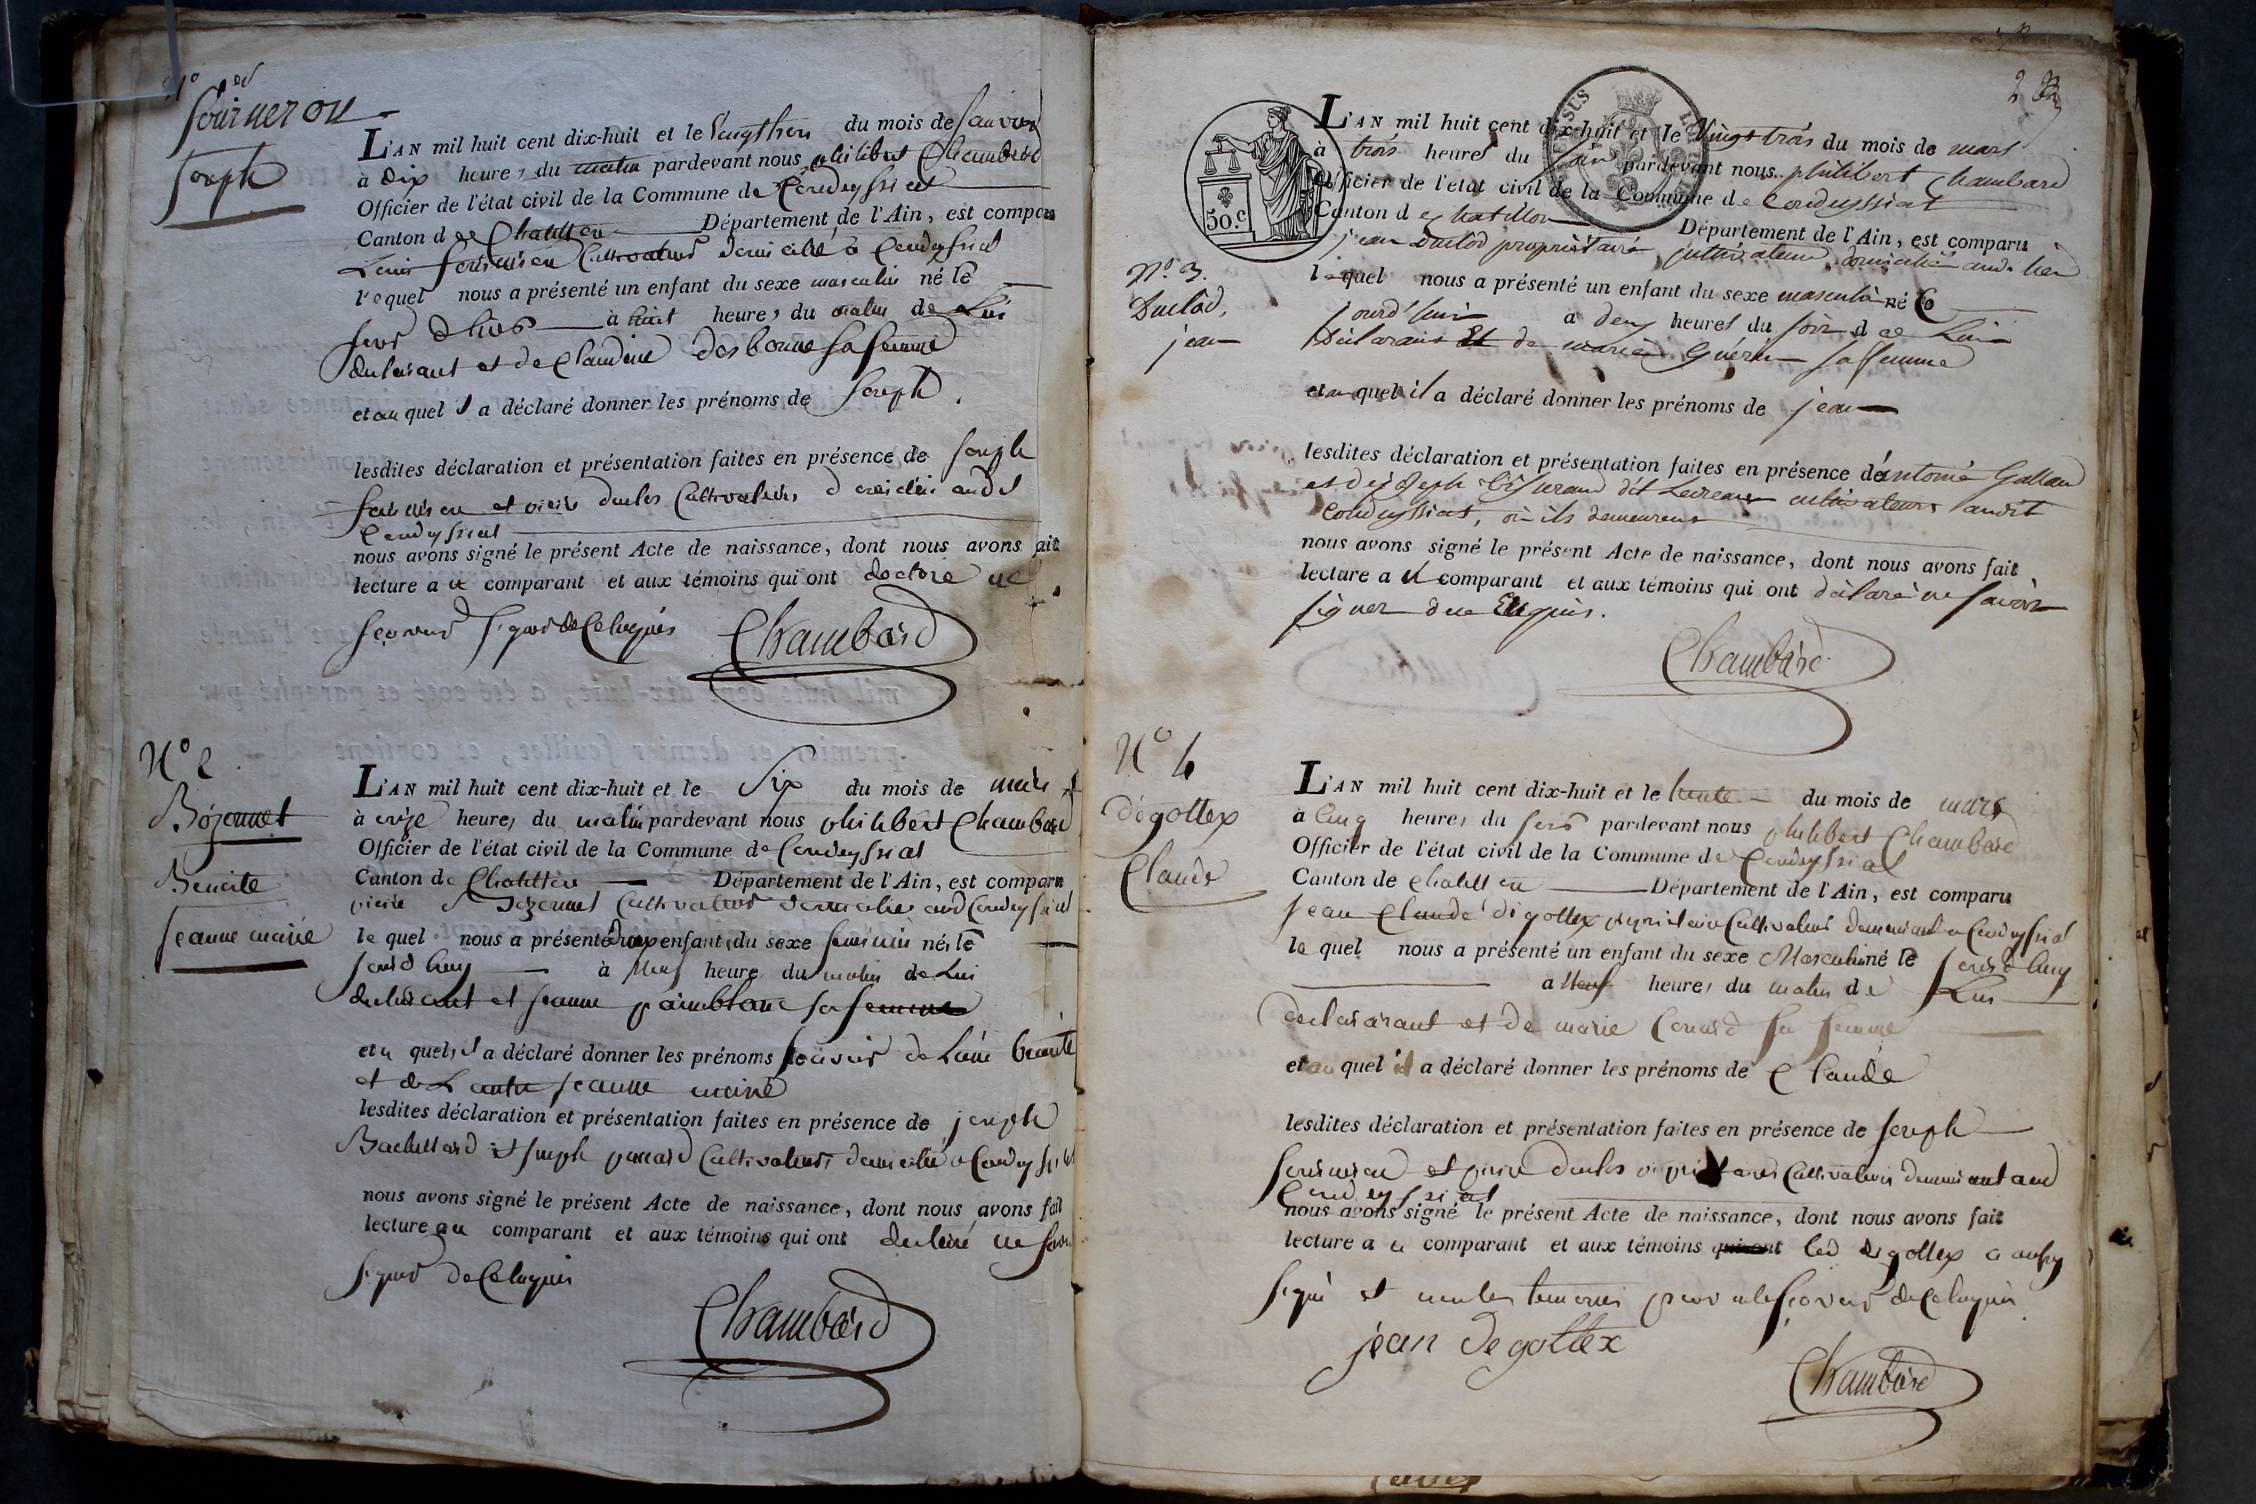 N° 1er
fourneron
Joseph
L'AN mil huit cent dix-huit et le vingt trois du mois de janvier
à dix heures du matin pardevant nous philibert Chambard
Officier de l'état civil de la Commune de Condeyssiat
Canton de Chatillon Département de l'Ain, est comparu
Louis Cultivateur domicilié a Condeyssiat
lequel nous a présenté un enfant du sexe masculin né le
à huit heures du matin de Lui
declarant et de Claudine desbonne sa femme
et au quel il a déclaré donner les prénoms de Joseph
lesdites déclaration et présentation faites en présence de Joseph
et Cultivateurs aud
Condeyssiat
nous avons signé le présent Acte de naissance, dont nous avons fait
lecture a ce comparant et aux témoins qui ont ne
signer de Ce Requis
Chambard
N° 2
Bozonnet
Benoite
jeanne marie
L'AN mil huit cent dix-huit et le Six du mois de mars
à onze heures du matin pardevant nous philibert Chambard
Officier de l'état civil de la Commune de Condeyssiat
Canton de Chatillon Département de l'Ain, est comparu
pierre Bozonnet Cultivateur domicilié aud Condeyssiat
le quel nous a présenté deux enfant du sexe feminin nés le
à Neuf heure du matin de Lui
declarant et jeanne painblanc sa femme
et a quels il a déclaré donner les prénoms scavoir de Lune benoite
et de Lautre jeanne marie
lesdites déclaration et présentation faites en présence de joseph
et joseph Cultivateurs domicilié a Condeyssiat
nous avons signé le présent Acte de naissance, dont nous avons fait
lecture au comparant et aux témoins qui ont declaré ne savoir
signer de Ce Requis
Chambard
2
50.C
L'AN mil huit cent dix-huit et le vingt trois du mois de mars
à trois heures du soir pardevant nous philibert Chambard
Officier de l'état civil de la Commune de Condeyssiat
Canton de chatillon Département de l'Ain, est comparu
jean Duclod propriétaire, cultivateur, domicilié aud. lieu
N° 3.
Duclod,
jean
lequel nous a présenté un enfant du sexe masculin né ce
jourd'hui à deux heures du soir de Lui
Déclarant Et de marie Guérin sa femme
et au quel il a déclaré donner les prénoms de jean
lesdites déclaration et présentation faites en présence d'antoine Galland
et de joseph dit cultivateurs audit
Condeyssiat, où ils demeurent
nous avons signé le présent Acte de naissance, dont nous avons fait
lecture a comparant et aux témoins qui ont déclaré ne savoir
signer de ce Requis.
Chambard
N° 4
dégottex
Claude
L'AN mil huit cent dix-huit et le trente du mois de mars
à Cinq heures du soir pardevant nous philibert Chambard
Officier de l'état civil de la Commune de Condeyssiat
Canton de chatillon Département de l'Ain, est comparu
jean Claude dégottex propriétaire Cultivateur demeurant a Condeyssiat
le quel nous a présenté un enfant du sexe Masculin né le
à Neuf heures du matin de Lui
declarant et de marie sa femme
et au quel il a déclaré donner les prénoms de Claude
lesdites déclaration et présentation faites en présence de joseph
et pierre propriétaires Cultivateurs demeurant aud
Condeyssiat
nous avons signé le présent Acte de naissance, dont nous avons fait
lecture a ce comparant et aux témoins led degottex a
signé et non les temoins pour ne le scavoir de Ce Requis
jean degottex
Chambard